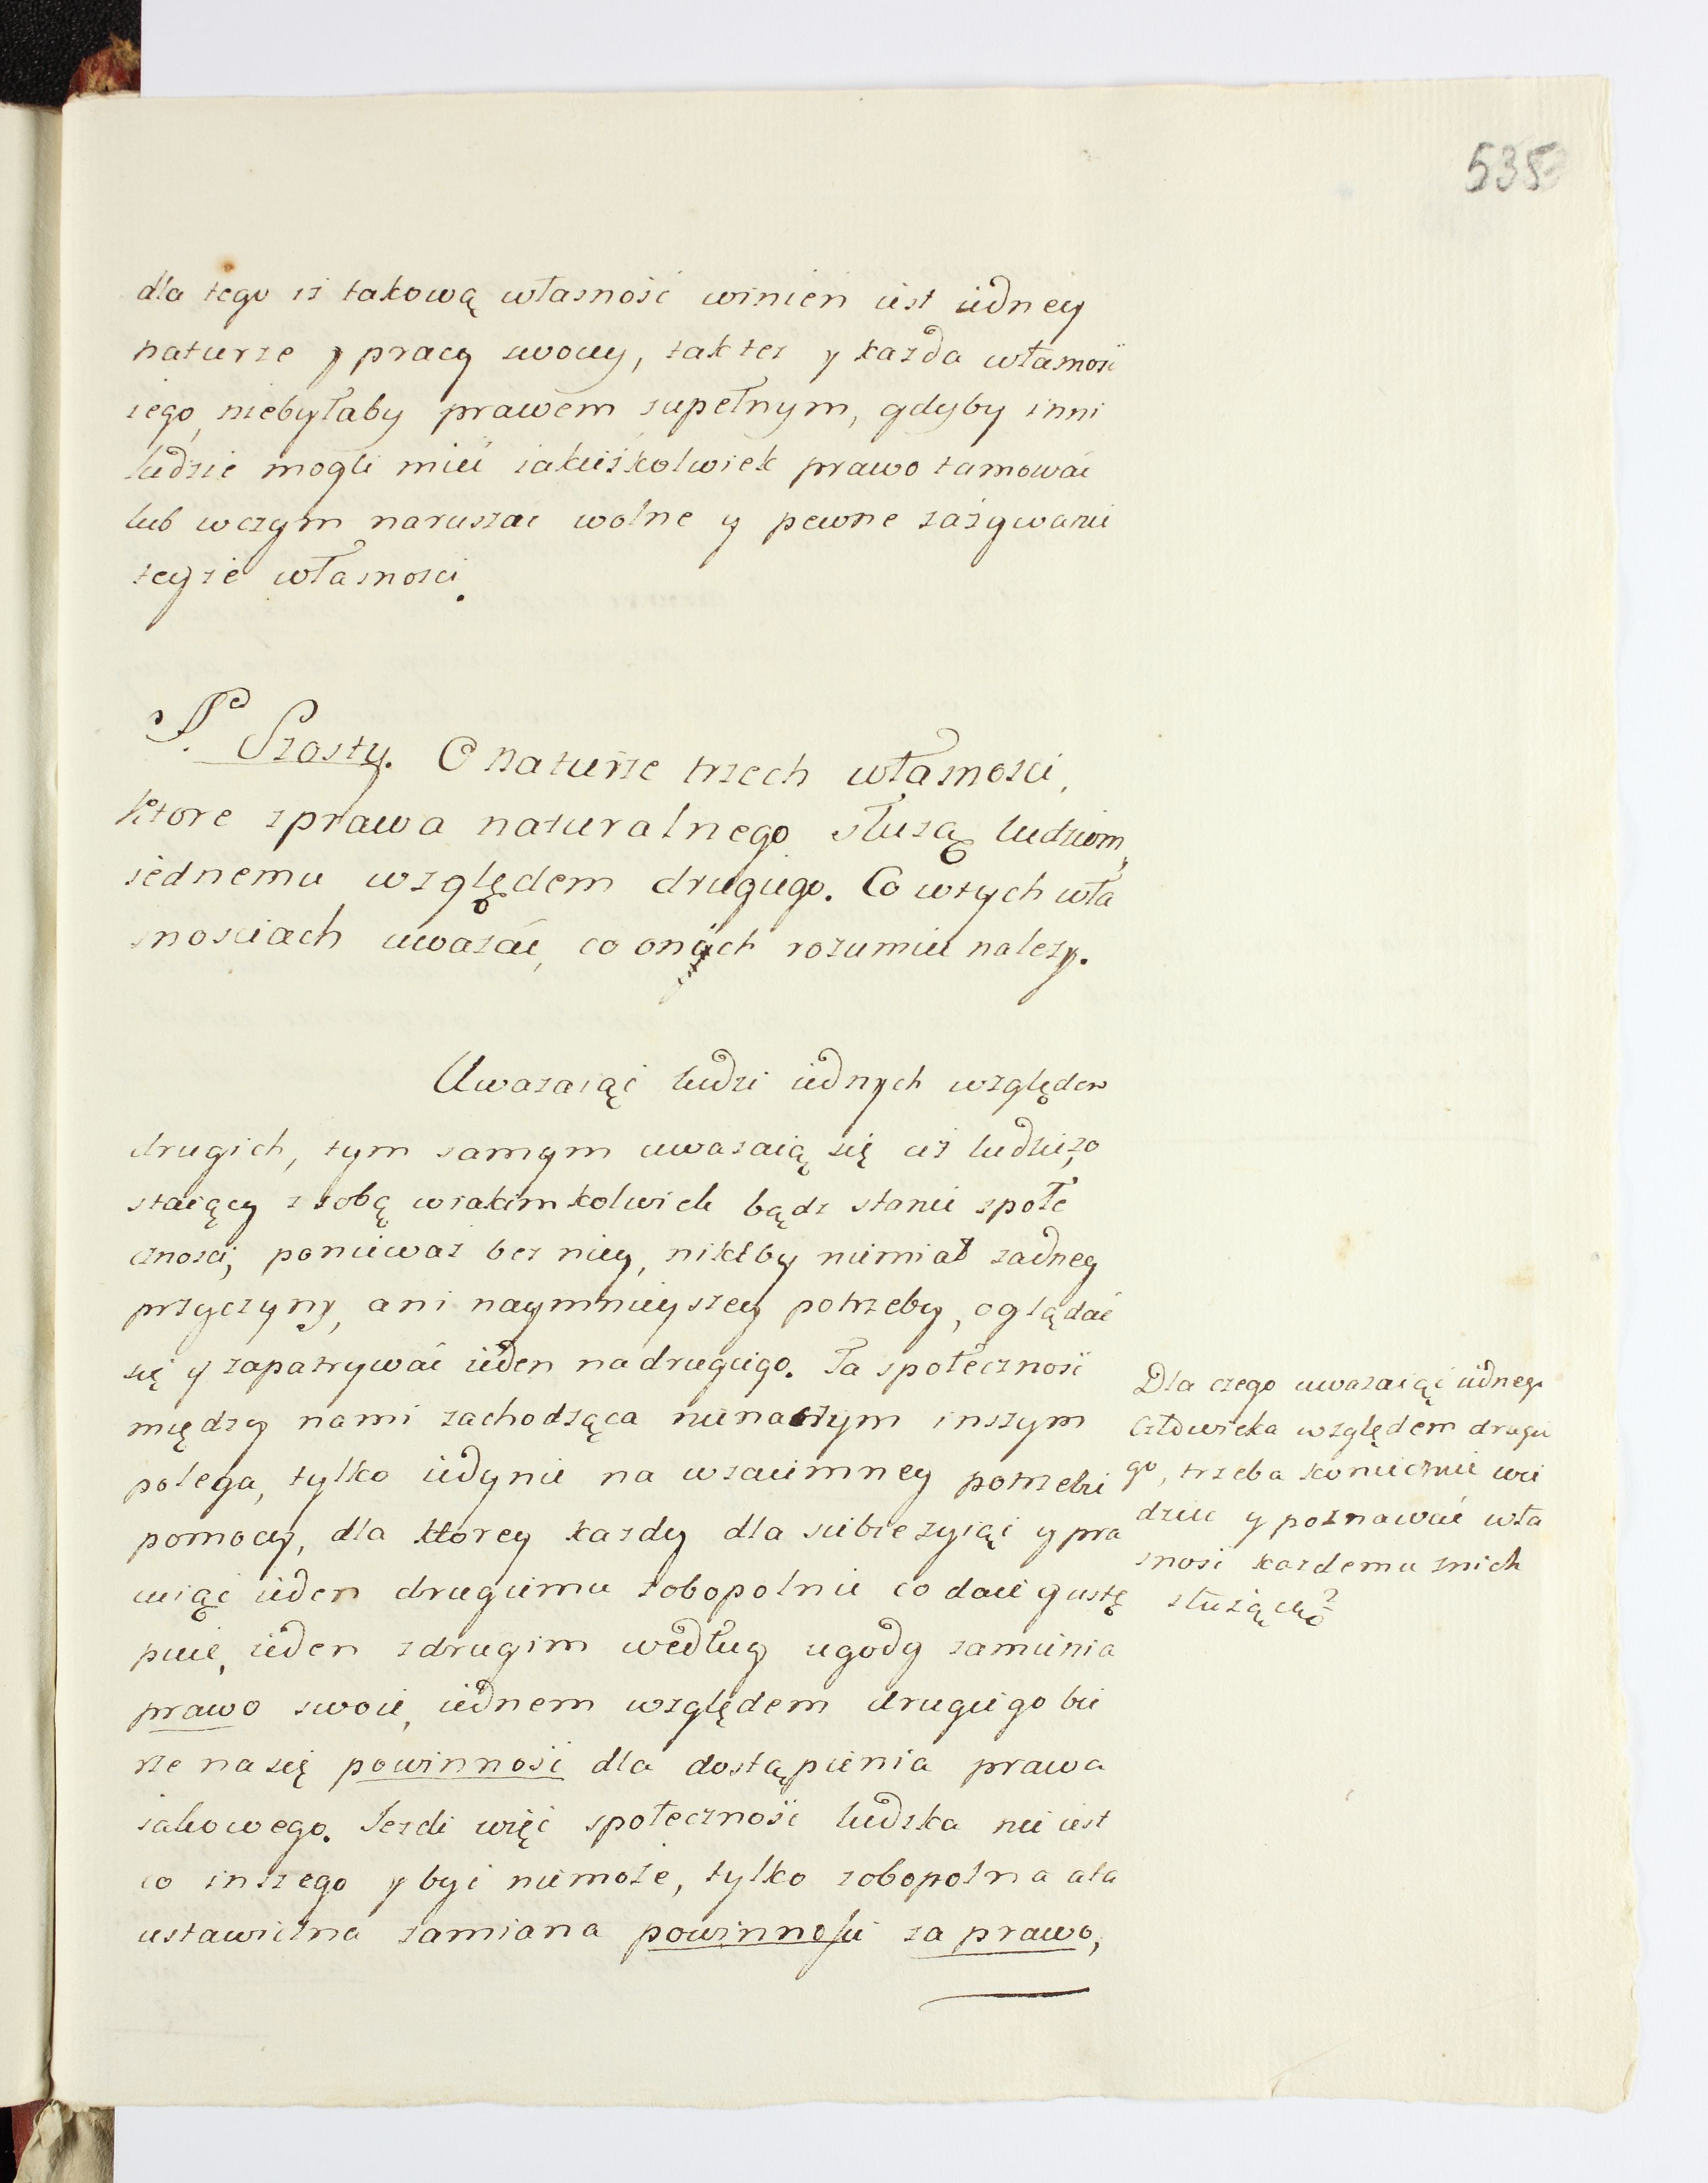 535
dla tego iż takową własność winien iest iedney
naturze y pracy swoiey, tak też y każda własność
iego, niebyłaby prawem zupełnym, gdyby inni
ludzie mogli mieć iakieśkolwiek prawo tamować
lub wczym naruszać wolne y pewne zażywanie
teyże własności.
Szosty. O naturze trzech własności,
ktore zprawa naturalnego służą ludziom,
iednemu względem drugiego. Co wtych wła
snosciach uważać, co onych rozumieć należy.
Uważaiąc ludzi iednych względem
drugich, tym samym uważaią się iż ludzie zo
staiący z sobą wiakimkolwiek bądz stanie społe
cznosci, ponieważ bez niey, niktby niemiał żadney
przyczyny, ani naymnieyszey potrzeby, oglądać
się y zapatrywać ieden nadrugiego. Ta społeczność
między nami zachodząca nienaczym inszym
polega, tylko iedynie na wzaiemney potrzebie
pomocy, dla ktorey każdy dla siebie żyiąc y pra
cuiąc ieden drugiemu zobopolnie co daie y ustę
puie, ieden zdrugim według ugody zamienia
prawo swoie, iednem względem drugiego bie
rze na się powinność dla dostąpienia prawa
iakowego. Jeżeli więc społeczność ludzka nie iest
co inszego y być niemoże, tylko zobopolna ata
ustawiczna zamiana powinności za prawo,
Dla czego uważaiąc iednego
człowieka względem drugie
go, trzeba koniecznie wie
dziec y poznawać wła
sność każdemu znich
służącą?